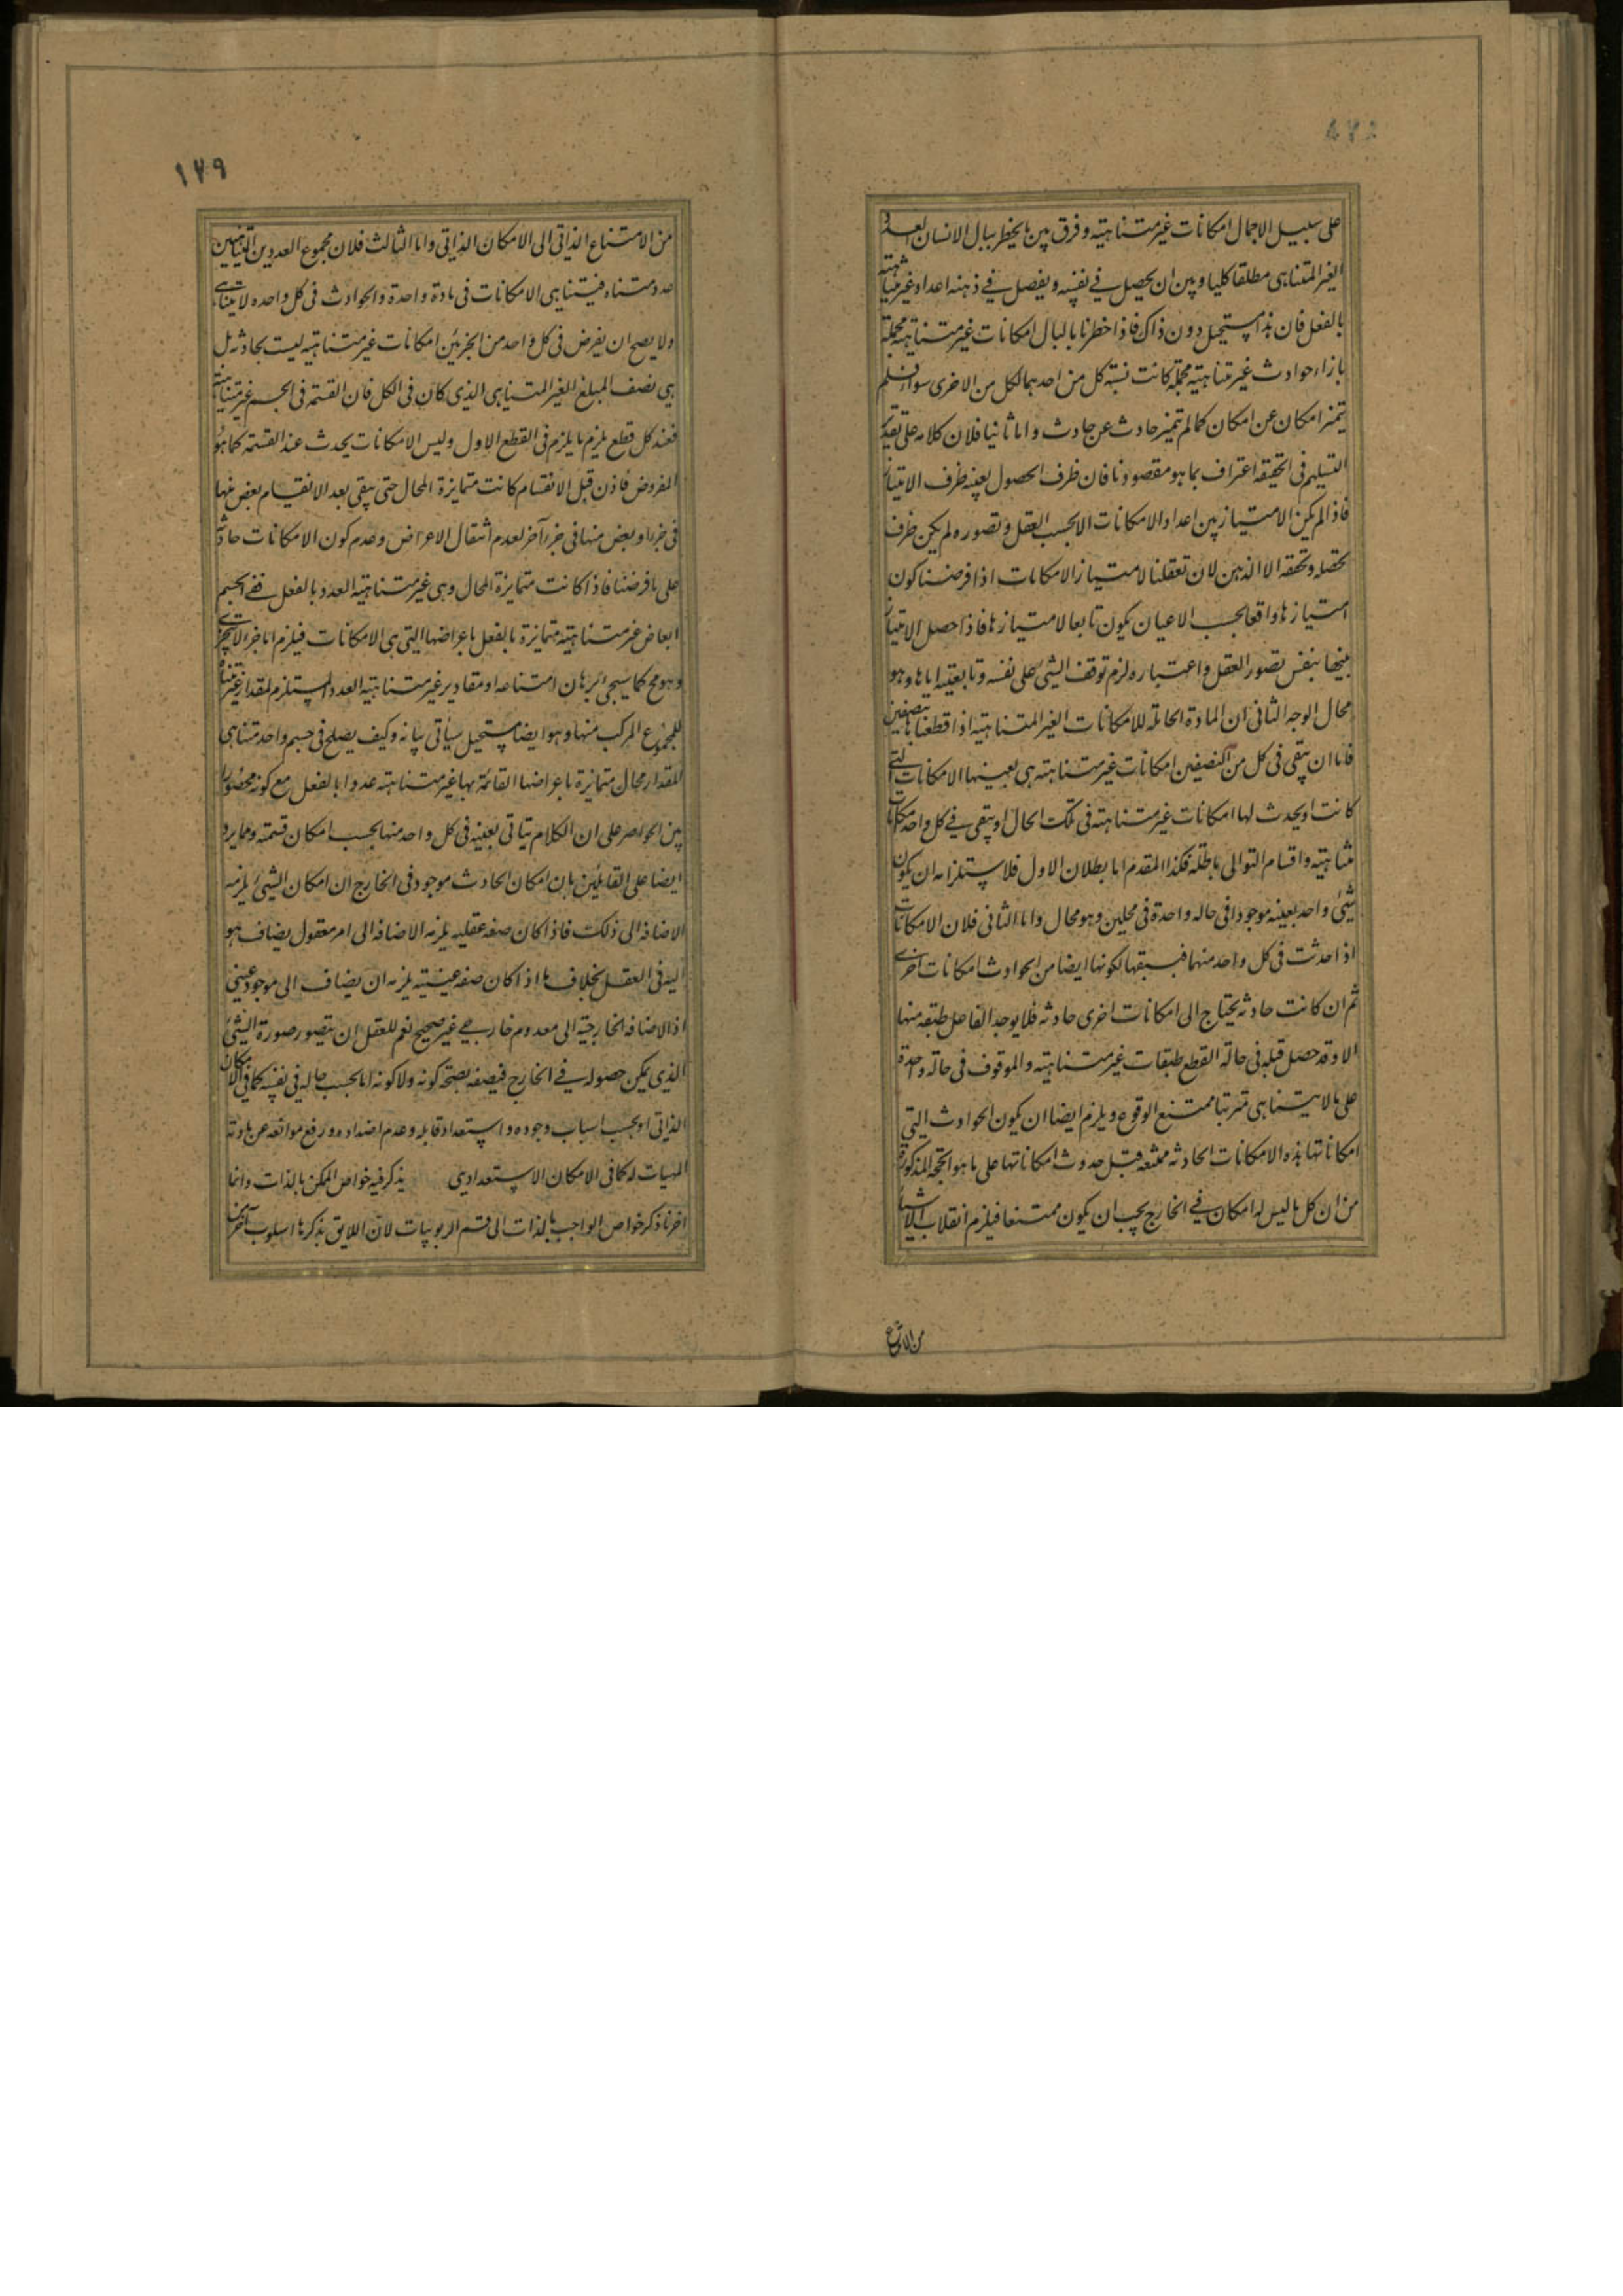 على سبيل الاجمال امكانات غير متناهية وفرق بين ما يخطر ببال الانسان العدد
الغير المتناهى مطلقا كليا وبين ان يحصل فى نفسه ويفصل فى ذهنه اعداد غير متناهية
بالفعل فان هذا مستحيل دون ذاك فاذا خطرنا بالبال امكانات غير متناهية مجملة
بازاء حوادث غير متناهية مجملة كانت نسبة كل من احدهما لكل من الاخرى سواء فلم
يتميز امكان عن امكان كما لم يتميز حادث عن حادث واما ثانيا فلان كلامه على تقدير
التسليم فى الحقيقه اعتراف بما هو مقصودنا فان ظرف الحصول بعينه ظرف الامتياز
فاذا لم يكن الامتياز بين اعداد الامكانات الا بحسب العقل وتصوره لم يكن ظرف
تحصله وتحققه الا الذهن لان تعقلنا لامتياز الامكانات اذا فرضنا كون
امتيازها واقعا بحسب الاعيان يكون تابعا لامتيازها فاذا حصل الامتياز
بينها بنفس تصور العقل واعتباره لزم توقف الشئ على نفسه وتابعيته اياها وهو
محال الوجه الثانى ان المادة الحاملة للامكانات الغير المتناهية اذا قطعناها بنصفين
فاما ان يبقى فى كل من النصفين امكانات غير متناهية هى بعينها الامكانات التى
كانت او يحدث لها امكانات غير متناهية فى تلك الحال او يبقى فى كل واحد امكانات
متناهية واقسام التوالى باطلة فكذا المقدم اما بطلان الاول فلاستلزامه ان يكون
شئ واحد بعينه موجودا فى حاله واحدة فى محلين وهو محال واما الثانى فلان الامكانات
اذا حدثت فى كل واحد منهما فيسبقها لكونها ايضا من الحوادث امكانات اخرى
ثم ان كانت حادثه يحتاج الى امكانات اخرى حادثه فلا يوجد الفاعل طبقه منها
الا وقد حصل قبله فى حالة القطع طبقات غير متناهية والموقوف فى حالة واحدة
على ما لا يتناهى مترتبا ممتنع الوقوع ويلزم ايضا ان يكون الحوادث التى
امكاناتها هذه الامكانات الحادثه ممتنعه قبل حدوث امكاناتها على ما هو الحجه المذكورة
من ان كل ما ليس له امكان فى الخارج يجب ان يكون ممتنعا فيلزم انقلاب الاشياء
من الامتناع
١٧٩
من الامتناع الذاتى الى الامكان الذاتى واما الثالث فلان مجموع العددين المتناهيين
عدد متناه فيتناهى الامكانات فى مادة واحدة والحوادث فى كل واحده لا يتناهى
ولا يصح ان يفرض فى كل واحد من الجزئين امكانات غير متناهية ليست بحادثه بل
هى نصف المبلغ الغير المتناهى الذى كان فى الكل فان القسمة فى الجسم غير متناهية
فعند كل قطع يلزم ما يلزم فى القطع الاول وليس الامكانات يحدث عند القسمة كما هو
المفروض فاذن قبل الانقسام كانت متمايزة المحال حتى يبقى بعد الانقسام بعض منها
فى جزء وبعض منها فى جزء آخر لعدم انتقال الاعراض وعدم كون الامكانات حادثة
على ما فرضنا فاذا كانت متمايزة المحال وهى غير متناهية العدد بالفعل ففى الجسم
ابعاض غير متناهية متمايزة بالفعل باعراضها التى هى الامكانات فيلزم اما جزء لا يتجزى
وهو مح كما سيجئ برهان امتناعه او مقادير غير متناهية العدد المستلزم لمقدار غير متناه
للمجموع المركب منها وهو ايضا مستحيل سيأتى بيانه وكيف يصلح فى جسم واحد متناهى
المقدار محال متمايزة باعراضها القائمة بها غير متناهيته عددا بالفعل مع كونه محصورا
بين الحواصر على ان الكلام يتأتى بعينه فى كل واحد منها بحسب امكان قسمته ومما يرد
ايضا على القائلين بان امكان الحادث موجود فى الخارج ان امكان الشئ يلزمه
الاضافه الى ذلك فاذا كان صفه عقليه يلزمه الاضافه الى امر معقول يضاف هو
اليه فى العقل بخلاف ما اذا كان صفه عينية يلزمه ان يضاف الى موجود عينى
اذ الاضافه الخارجية الى معدوم خارجى غير صحيح نعم للعقل ان يتصور صورة الشئ
الذى يمكن حصوله فى الخارج فيصفه بصحة كونه ولا كونه اما بحسب حاله فى نفسه كما فى الامكان
الذاتى او بحسب اسباب وجوده واستعداد قابله وعدم اضداده ورفع موانعه عن مادته
المهيات له كما فى الامكان الاستعدادى يذكر فيه خواص الممكن بالذات وانما
اخرنا ذكر خواص الواجب بالذات الى قسم الربوبيات لان اللايق بذكرها اسلوب آخر